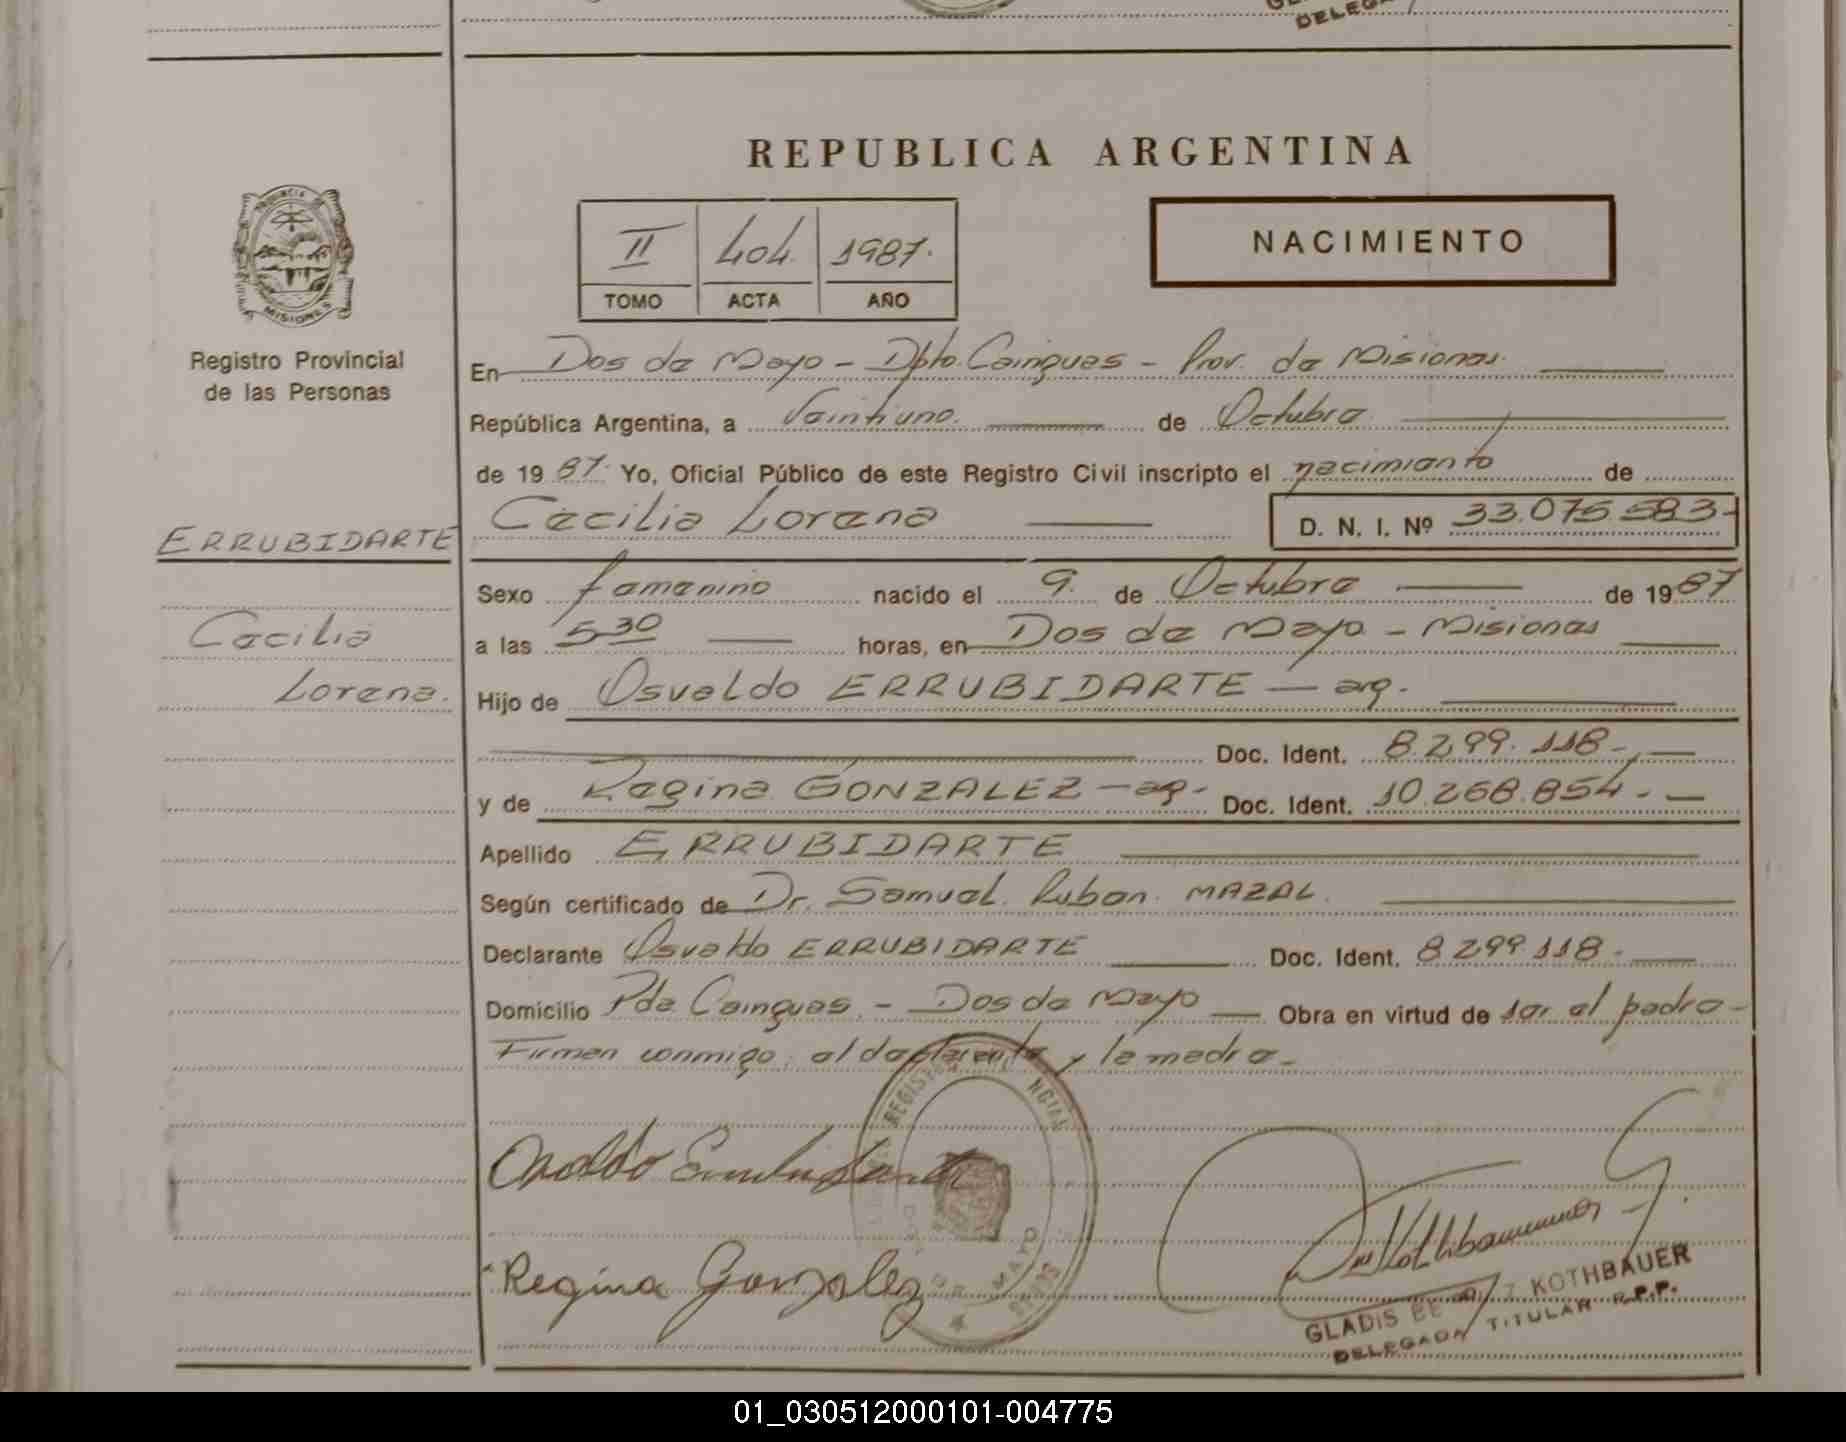 DELEGA
REPUBLICA ARGENTINA
PROVINCIA DE
MISIONES
II 404. 1987.
TOMO ACTA AÑO
NACIMIENTO
Registro Provincial
de las Personas
En Dos de Mayo - Dpto. Cainguas - Prov. de Misiones.
República Argentina, a Veintiuno. de Octubre
de 19 87. Yo, Oficial Público de este Registro Civil inscripto el nacimiento de
Cecilia Lorena D. N. I. Nº 33.075.583-
ERRUBIDARTE
Cecilia
Lorena.
Sexo femenino nacido el 9. de Octubre de 19 87
a las 5 30 horas, en Dos de Mayo - Misiones
Hijo de Osvaldo ERRUBIDARTE - arg.
Doc. Ident. 8.299.118-
y de Regina GONZALEZ - arg- Doc. Ident. 10.268.854.-
Apellido ERRUBIDARTE
Según certificado de Dr. Samuel Ruben. MAZAL.
Declarante Osvaldo ERRUBIDARTE Doc. Ident. 8.299.118-
Domicilio Pda. Cainguas. - Dos de Mayo Obra en virtud de ser el padre-
Firman conmigo, el declarante y la madre-
Osvaldo Errubidarte
Regina Gonzalez
GLADIS KOTHBAUER
DELEGADA TITULAR R.P.P.
01_030512000101-004775